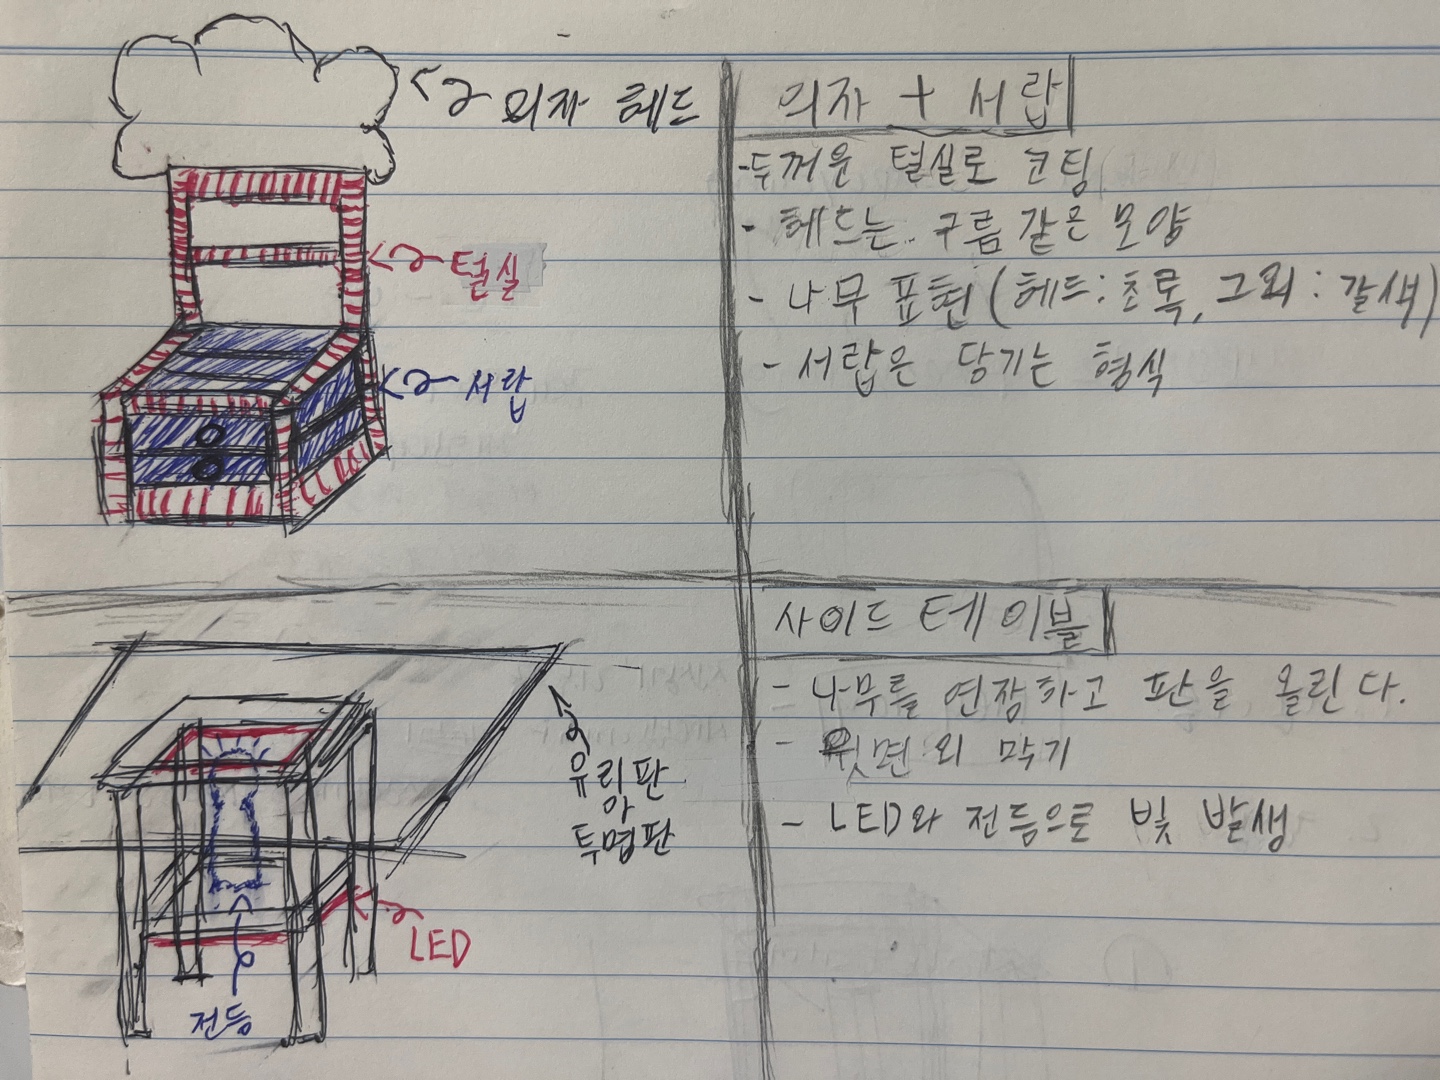 의자 헤드
털실
서랍
의자 + 서랍
-두꺼운 털실로 코팅
- 헤드는.. 구름 같은 모양
- 나무 표현 (헤드:초록, 그외 : 갈색)
- 서랍은 당기는 형식
유리판
아
투명판
LED
전등
사이드 테이블
- 나무를 연장하고 판을 올린다.
- 윗면 외 막기
- LED와 전등으로 빛 발생